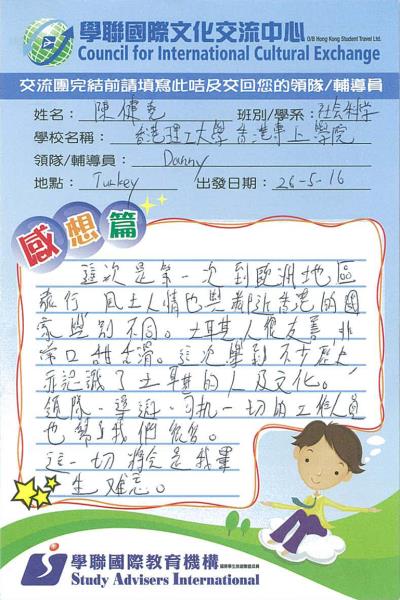 學聯國際文化交流中心 O/B Hong Kong Student Travel Ltd.
Council for International Cultural Exchange
交流團完結前請填寫此咭及交回您的領隊/輔導員
姓名: 陳健堯 班別/學系: 社会科学
學校名稱: 香港理工大學香港專上學院
領隊/輔導員: Danny
地點: Turkey 出發日期: 26-5-16
感想篇
這次是第一次到歐洲地區
旅行 風土人情也與鄰近香港的國
家學別不同。土耳其人很友善,非
常口甜舌滑。這次學到不少歷史
亦認識了土耳其的人及文化。
領隊、導遊、司机一切的工作人員
也幫了我們很多。
這一切將会是我畢
生难忘。
學聯國際教育機構
Study Advisers International